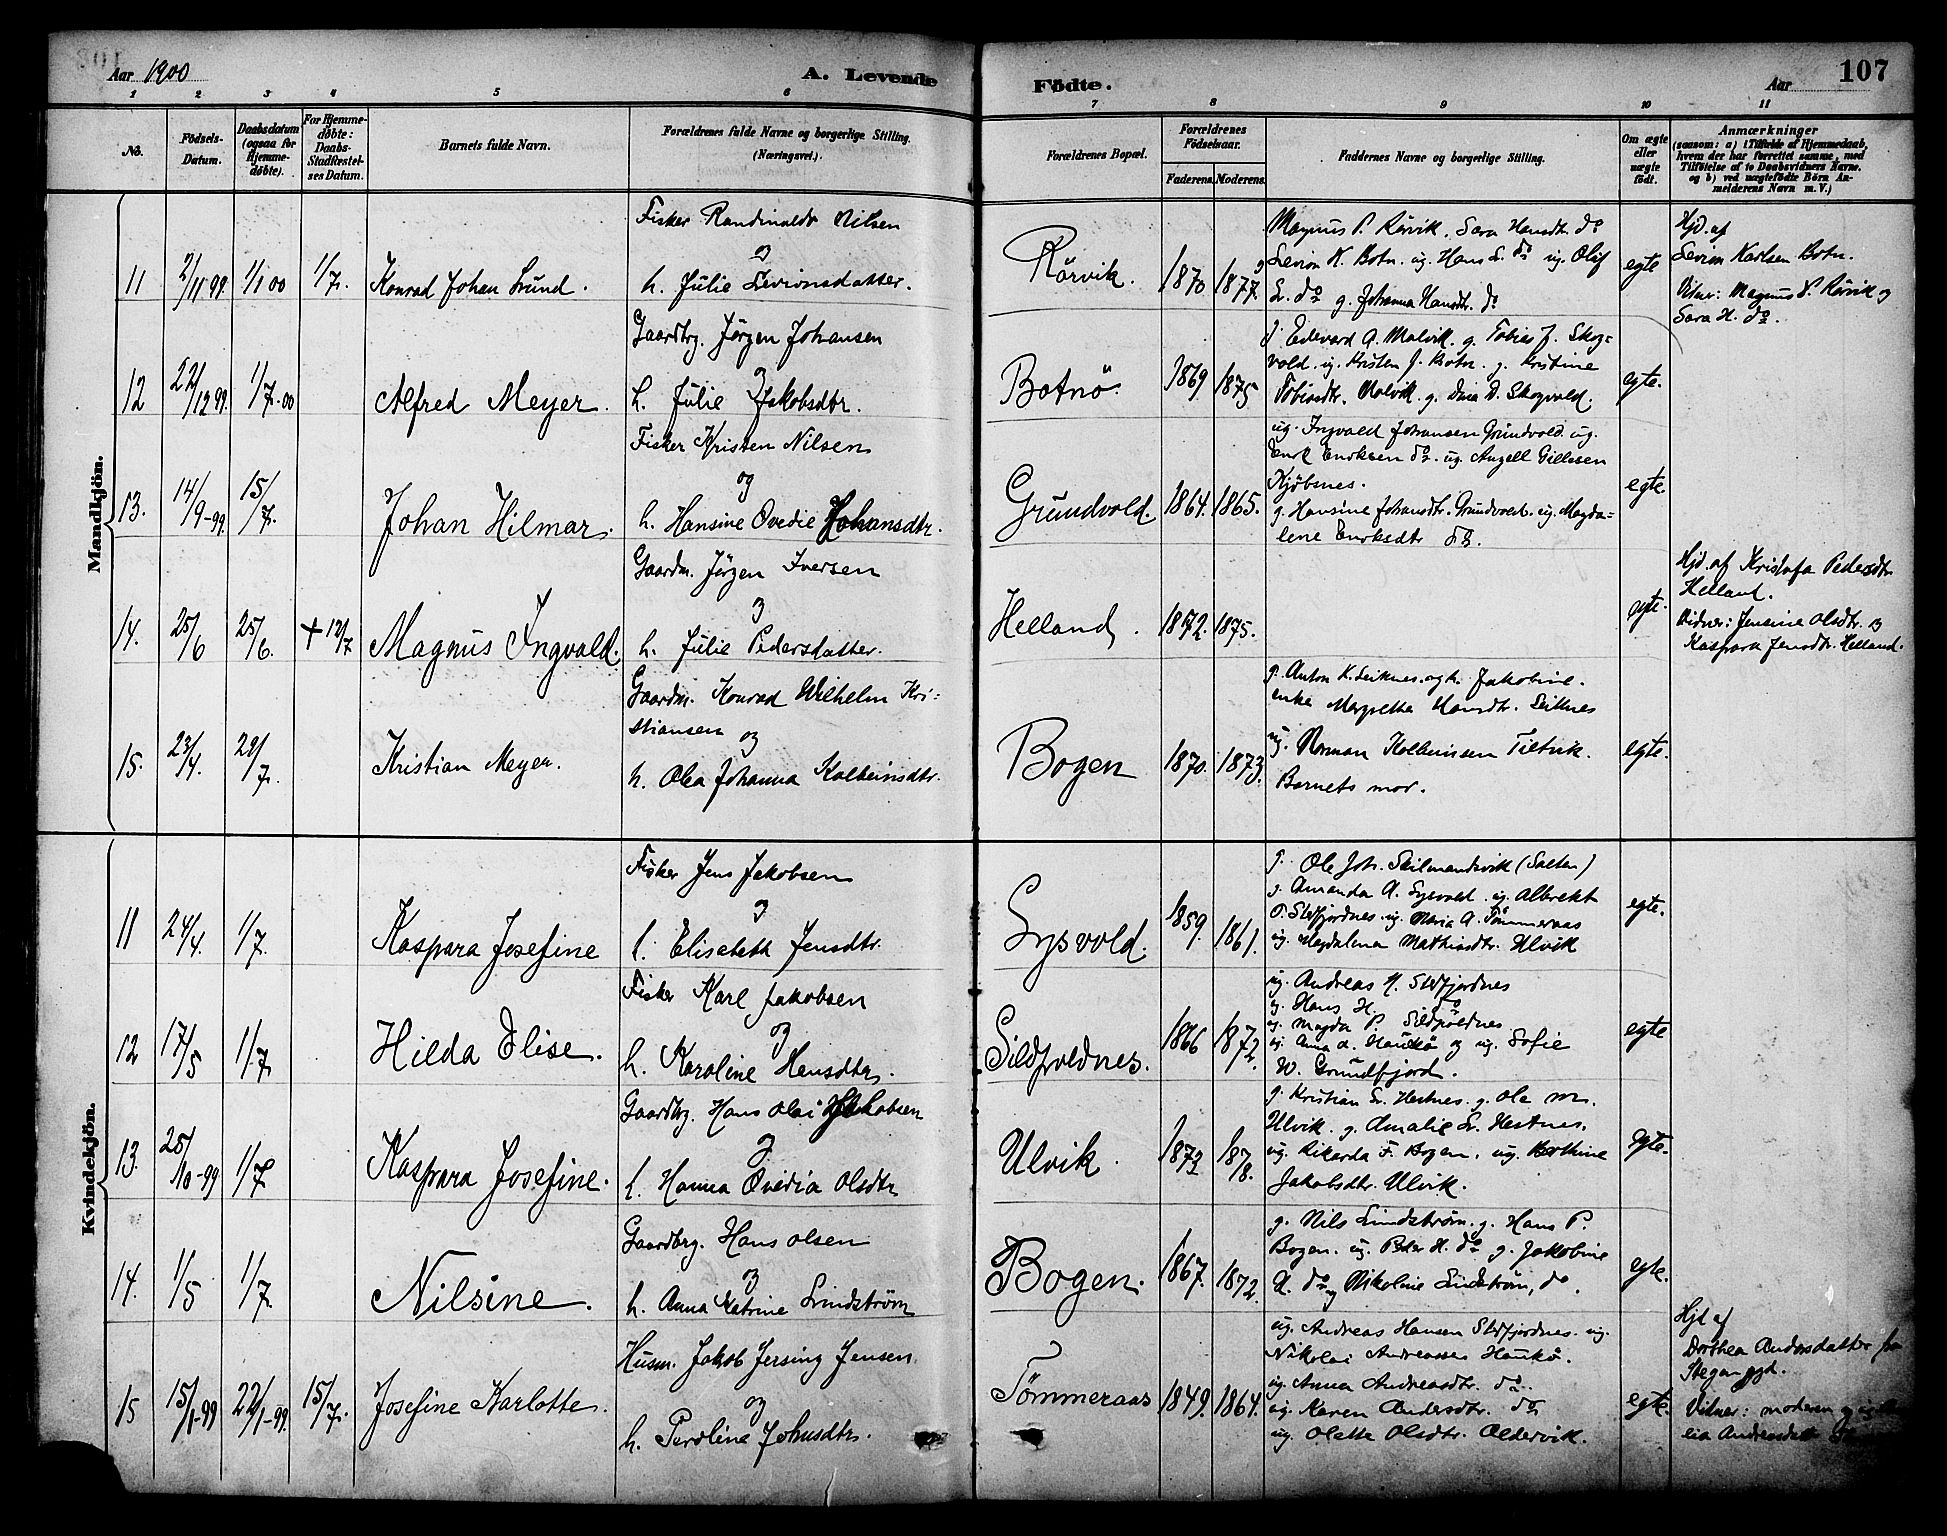 Aar 1900
A. Levende
Fødte.
Aar
107
1 2 3 4 5 6 7 8 9 10 11
No.
Fødsels-
Datum.
Daabsdatum
(ogsaa for
Hjemme-
døbte).
For Hjemme-
døbte:
Daabs-
Stadfæstel-
ses Datum.
Barnets fulde Navn.
Forældrenes fulde Navne og borgerlige Stilling.
(Næringsvei).
Forældrenes Bopæl.
Forældrenes
Fødselsaar.
Faderens. Moderens.
Faddernes Navne og borgerlige Stilling.
Om ægte
eller
uægte
født.
Anmærkninger
(saasom: a) i Tilfælde af Hjemmedaab,
hvem der har forrettet samme, med
Tilføielse af to Daabsvidners Navne,
og b) ved uægtefødte Børn An-
melderens Navn m. V.)
Mandkjön.
11 2/11 99. 1/1 00 1/7. Konrad Johan Lund.
Fisker Randinaldr Nilsen
og
h. Julie Levionsdatter.
Rörvik. 1870 1877.
Magnus P. Rörvik. Sara Hansdt. do
Levion K. Botn. ug. Hans L. do ug. Olif
L. do g. Johanna Hansdtr. do
egte
Hjd. af
Levion Karlsen Botn.
Vitner: Magnus P. Rörvik og
Sara H. do.
12 22/12 99. 1/7.00 Alfred Meyer.
Gaardbrg. Jörgen Johansen
og
h. Julie Jakobsdtr.
Botnö. 1869 1875
g. Edevard A. Malvik. g. Tobias J. Skog-
vold. ug. Kristen J. Botn. g. Kristine
Tobiasdtr. Malvik. g. Dina D. Skogvold.
egte.
13. 14/9-99 15/7. Johan Hilmar.
Fisker Kristen Nilsen
og
h. Hansine Ovedie Johansdtr.
Grundvold. 1864. 1865.
ug. Ingvald Johansen Grundvold. ug.
Enok Enoksen do. ug. Angell Gillesen
Kjöbsnes.
g. Hansine Johansdtr. Grundvold. ug. Magda-
lene Enoksdtr do.
egte.
14. 25/6 25/6. + 12/7 Magnus Ingvald.
Gaardm. Jörgen Iversen
og
h. Julie Pedersdatter.
Helland. 1872. 1875.
egte.
Hjd. af Kristofa Pedersdtr
Helland.
Vidner: Jensine Olsdtr. og
Kaspara Jensdtr. Helland.
15. 23/4. 29/7. Kristian Meyer.
Gaardm. Konrad Wilhelm Kri-
stiansen og
h. Olea Johanna Kolbeinsdtr.
Bogen 1870. 1873.
g. Anton K. Leiknes. og h. Jakobine.
enke Margretha Hansdtr. Leiknes
ug. Norman Kolbeinsen Tiltvik.
Barnets mor.
egte.
Kvindekjön.
11 24/4. 1/7. Kaspara Josefine
Fisker Jens Jakobsen
og
h. Elisabeth Jensdtr.
Lysvold. 1859. 1861.
g. Ole Joh. Skilmandsvik (Salten)
g. Amanda A. Lysvold. ug. Albrekt
P. Slotfjordnes. ug. Maria A. Tömmeraas
ug. Magdalena Mathiasdtr. Ulvik
egte.
12 17/5 1/7 Hilda Elise.
Fisker Karl Jakobsen
og
h. Karoline Hansdtr.
Sildpoldnes. 1866 1872.
ug. Andreas H. Slotfjordnes
ug. Hans H. do
ug. Magda P. Sildpoldnes
ug. Anna A. Haukö og ug. Sofie
W. Grundfjord.
egte
13. 25/10-99 1/7 Kaspara Josefine.
Gaardbrg. Hans Olai Jakobsen
og
h. Hanna Ovedia Olsdtr
Ulvik. 1873 1878.
g. Kristian L. Hestnes. g. Ole M.
Ulvik. g. Amalie L. Hestnes.
ug. Rikarda F. Bogen. ug. Berthine
Jakobsdtr. Ulvik.
egte.
14. 1/5 1/7 Nilsine.
Gaardbrg. Hans Olsen
og
h. Anna Katrine Lindström
Bogen. 1867. 1872.
g. Nils Lindström. g. Hans P.
Bogen. ug. Peder H. do g. Jakobine
A. do og Nikoline Lindström, do.
egte.
15 15/1-99 22/1-99. 15/7. Josefine Karlotte.
Husm. Jakob Jersing Jensen
og
h. Peroline Johnsdtr.
Tömmeraas 1849. 1864.
ug. Andreas Hansen Slotfjordnes. ug.
Nikolai Andreassen Haukö.
ug. Anna Andreasdtr. do.
ug. Karen Andersdtr. do
ug. Oletta Olsdtr. Oldervik.
egte.
Hjd. af
Dorthea Andersdatter fra
Stegen pgd.
Vitner: moderen og
Andreasdatt